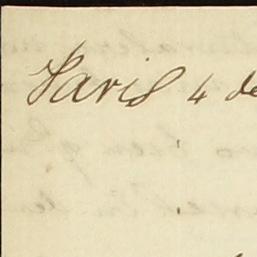 Paris 4 de